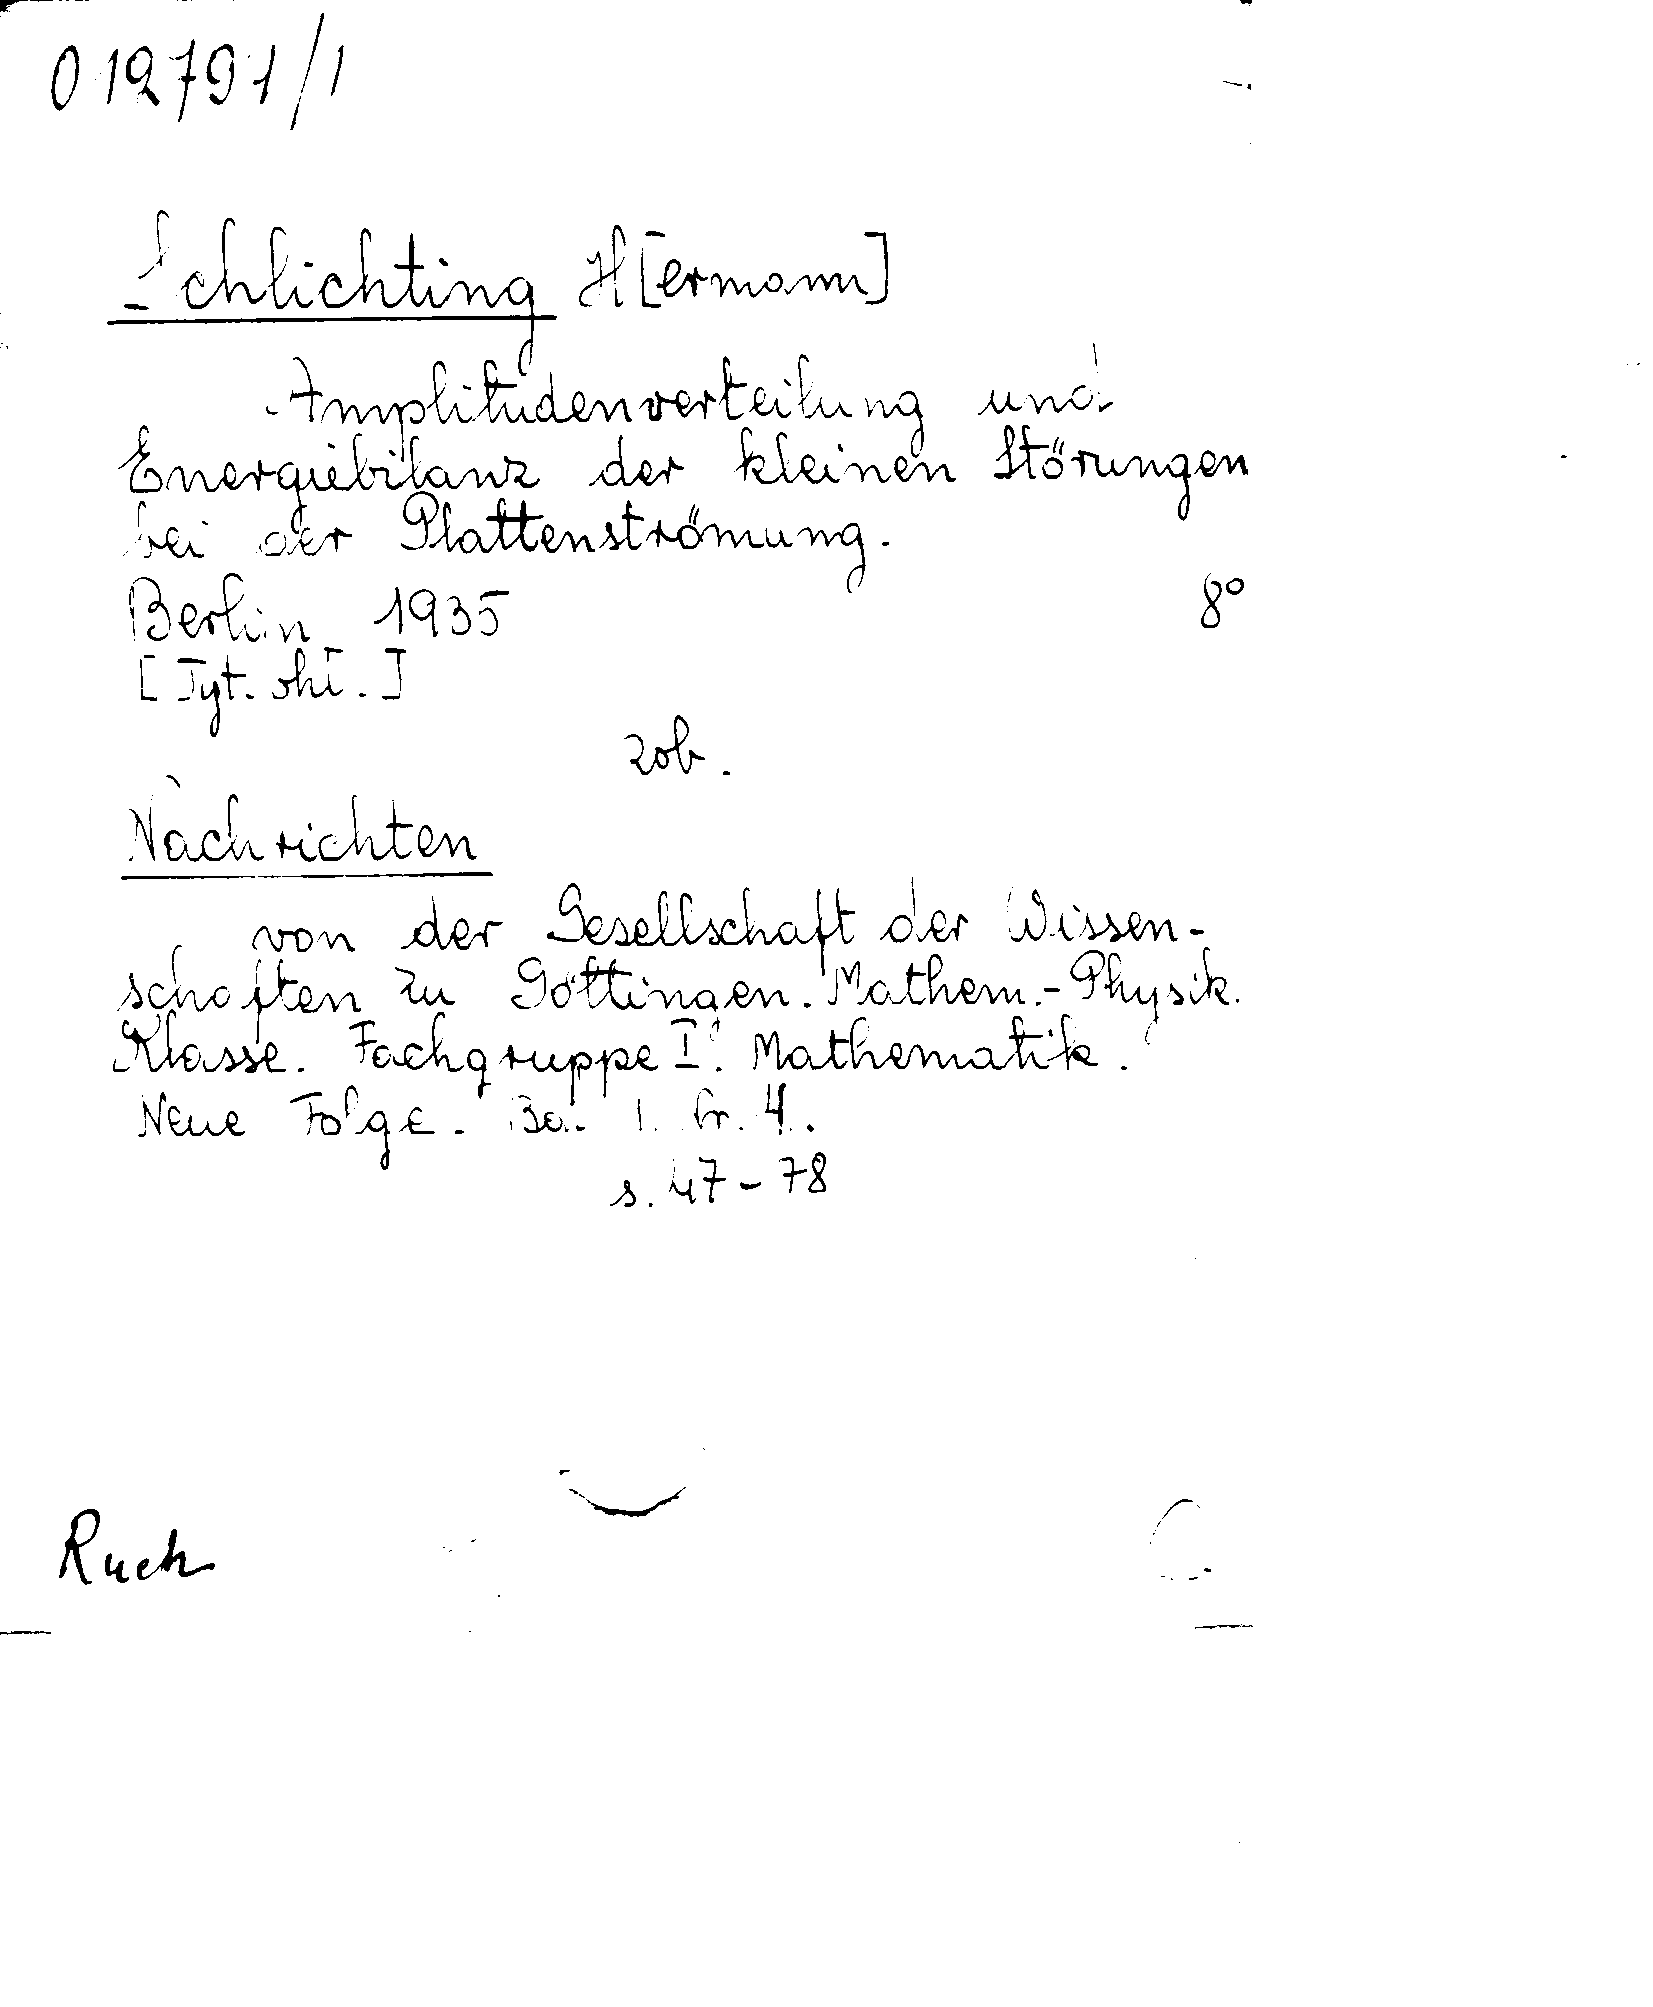 012791/1
Schlichting H[ermann]
Amplitudenverteilung und
Energiebilanz der kleinen Störungen
bei der Plattenströmung.
Berlin 1935 8°
[Tyt. okł.]
zob.
Nachrichten
von der Gesellschaft der Wissen-
schaften zu Göttingen. Mathem.-Physik.
Klasse. Fachgruppe I. Mathematik.
Neue Folge. Bd. 1. Nr. 4.
s. 47-78
Ruch